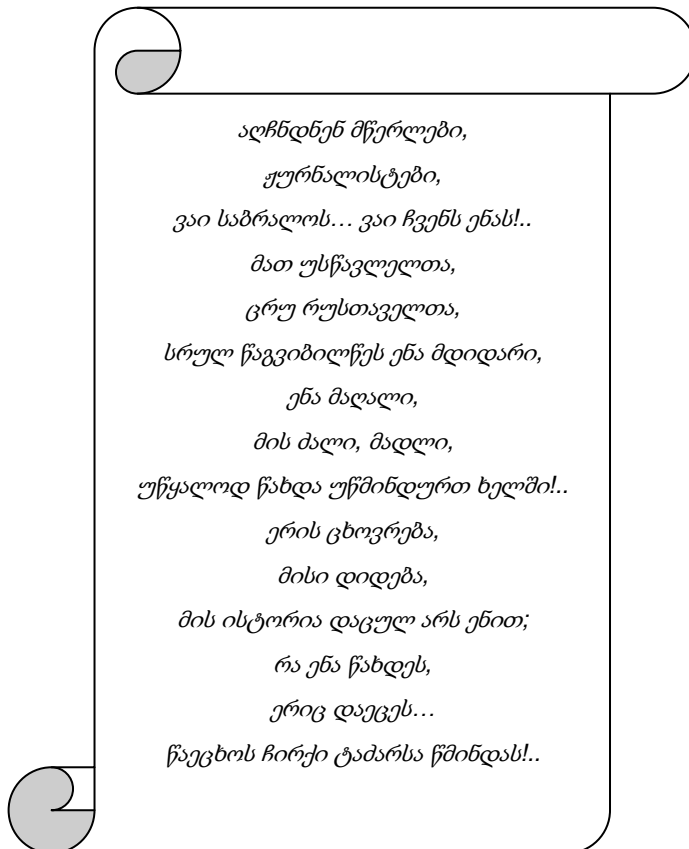 აღჩნდნენ მწერლები,
ჟურნალისტები,
ვაი საბრალოს... ვაი ჩვენს ენას!..
მათ უსწავლელთა,
ცრუ რუსთაველთა,
სრულ წაგვიბილწეს ენა მდიდარი,
ენა მაღალი,
მის ძალი, მადლი,
უწყალოდ წახდა უწმინდურთ ხელში!..
ერის ცხოვრება,
მისი დიდება,
მის ისტორია დაცულ არს ენით;
რა ენა წახდეს,
ერიც დაეცეს...
წაეცხოს ჩირქი ტაძარსა წმინდას!..